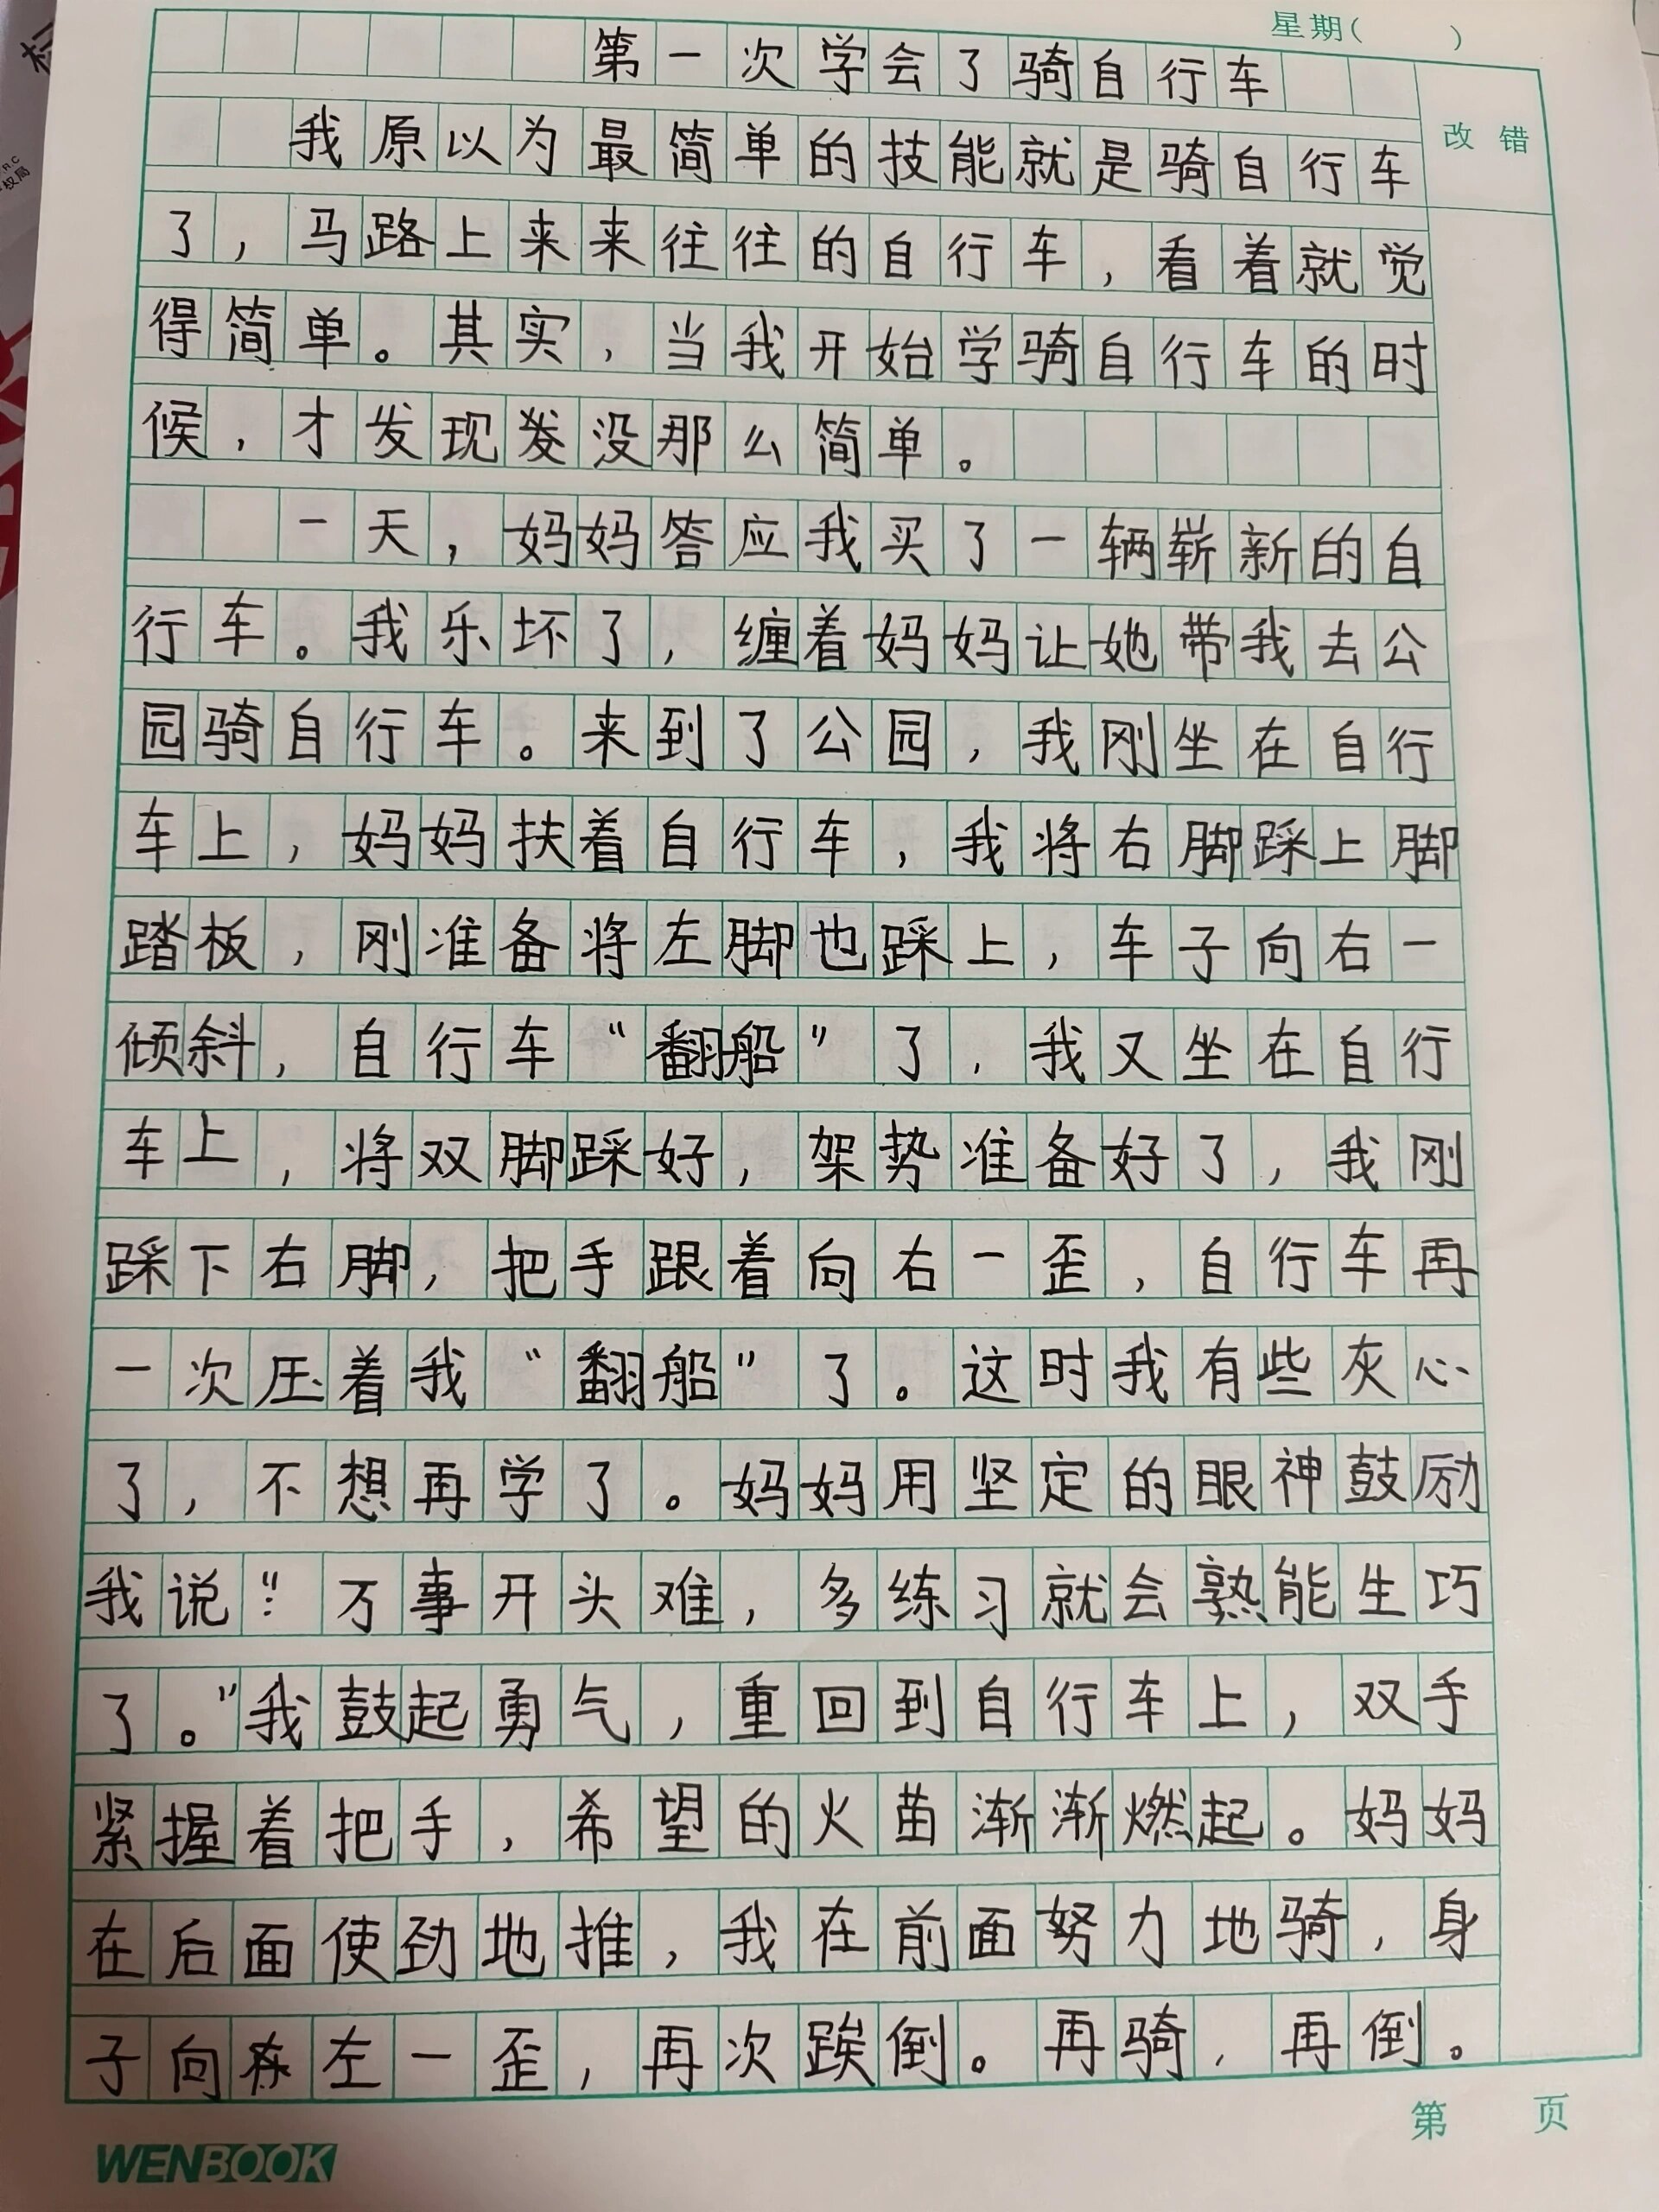 星期(    )
第一次学会了骑自行车
改错
我原以为最简单的技能就是骑自行车
了，马路上来来往往的自行车，看着就觉
得简单。其实，当我开始学骑自行车的时
候，才发现没那么简单。
一天，妈妈答应我买了一辆崭新的自
行车。我乐坏了，缠着妈妈让她带我去公
园骑自行车。来到了公园，我刚坐在自行
车上，妈妈扶着自行车，我将右脚踩上脚
踏板，刚准备将左脚也踩上，车子向右一
倾斜，自行车“翻船”了，我又坐在自行
车上，将双脚踩好，架势准备好了，我刚
踩下右脚，把手跟着向右一歪，自行车再
一次压着我“翻船”了。这时我有些灰心
了，不想再学了。妈妈用坚定的眼神鼓励
我说：“万事开头难，多练习就会熟能生巧
了。”我鼓起勇气，重回到自行车上，双手
紧握着把手，希望的火苗渐渐燃起。妈妈
在后面使劲地推，我在前面努力地骑，身
子向左一歪，再次跌倒。再骑，再倒。
第    页
WENBOOK